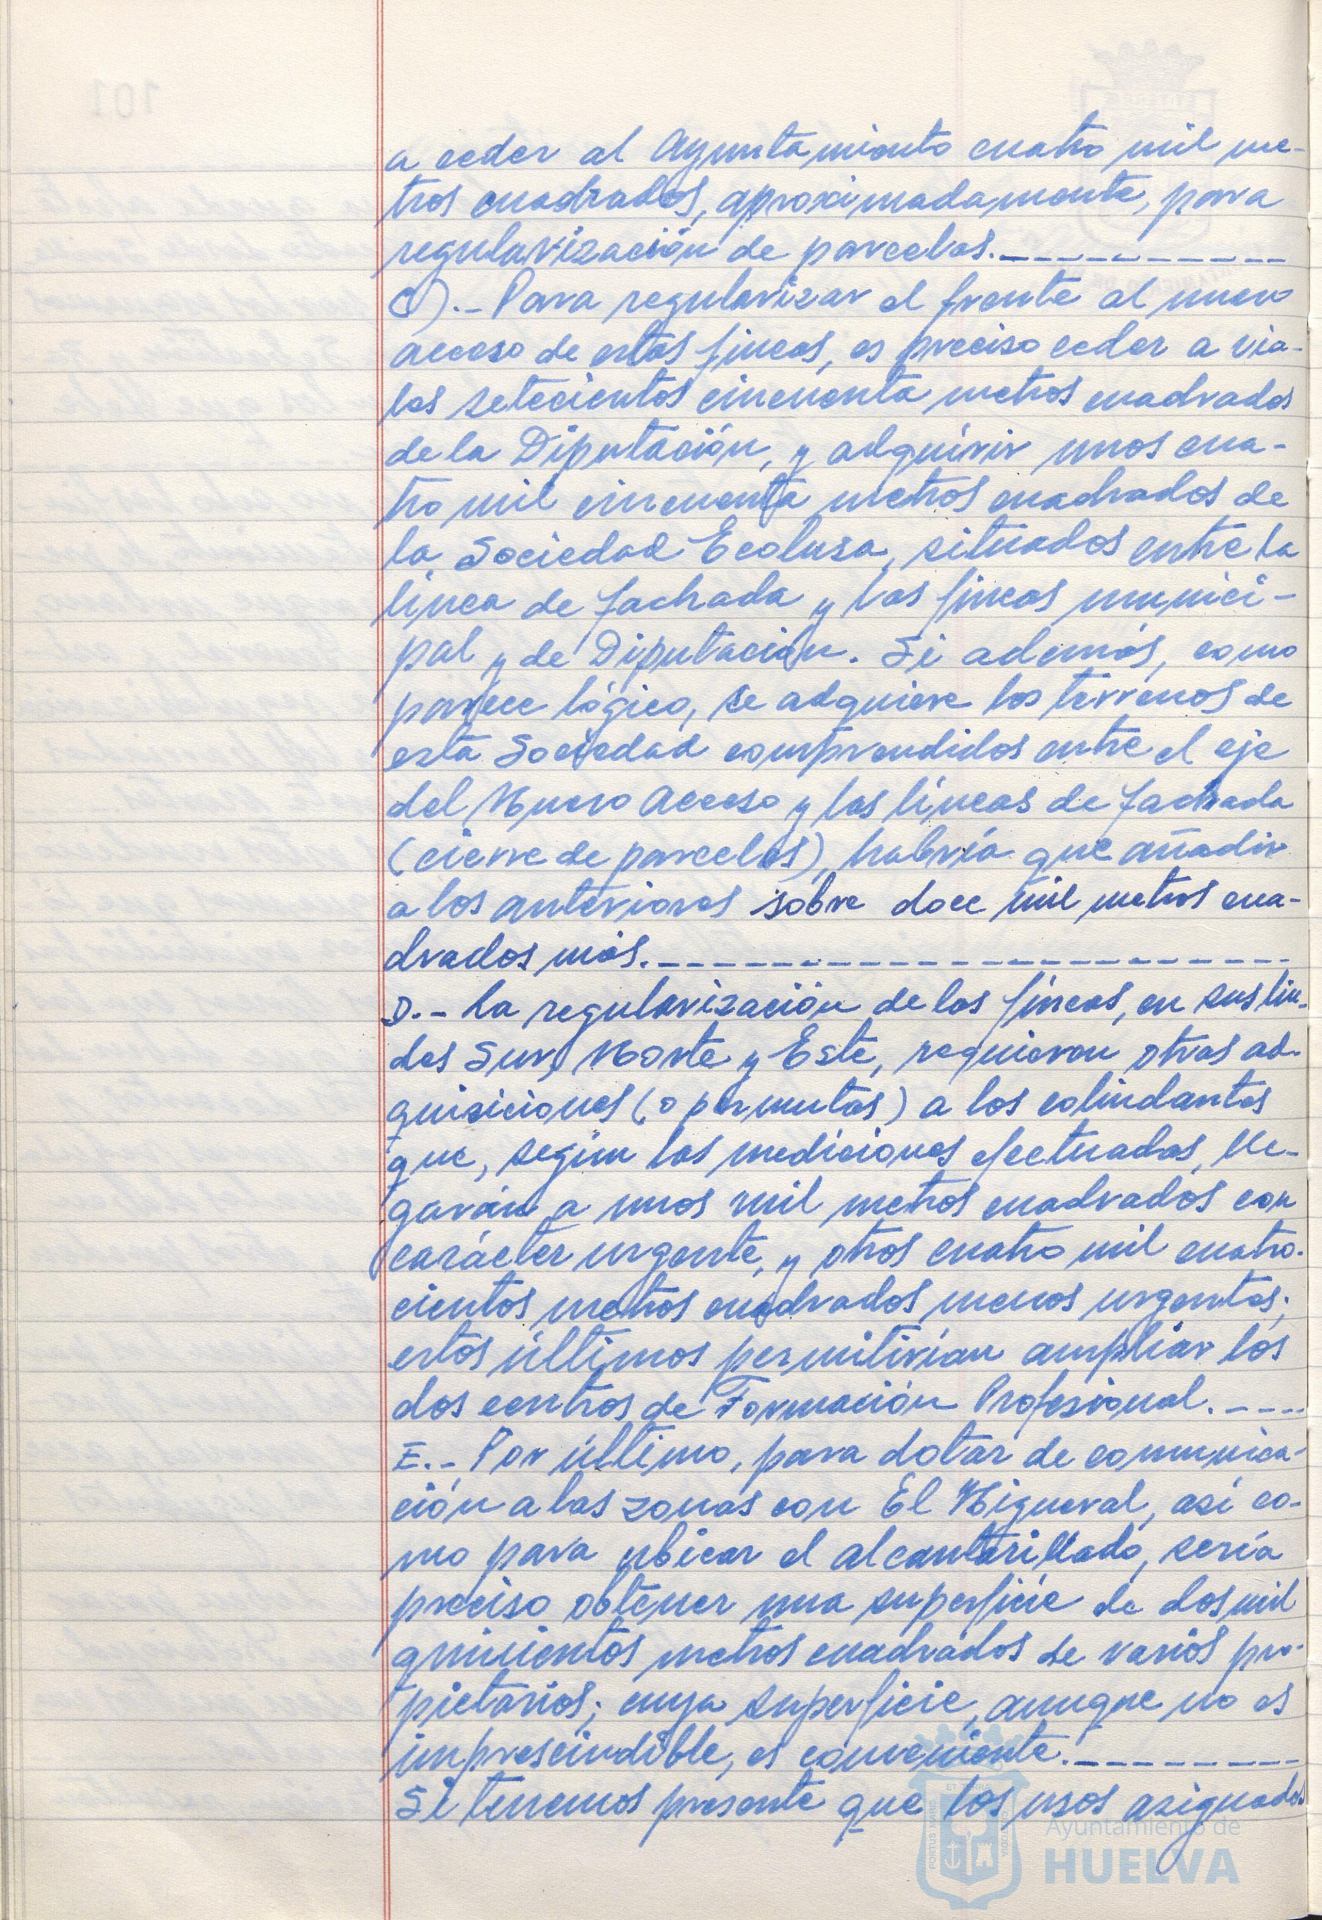 a ceder al Ayuntamiento cuatro mil me-
tros cuadrados, aproximadamente, para
regularización de parcelas.
C).- Para regularizar el frente al nuevo
acceso de estas fincas, es preciso ceder a via-
les setecientos cincuenta metros cuadrados
de la Diputación, y adquirir unos cua-
tro mil cincuenta metros cuadrados de
la Sociedad Ecolusa, situados entre la
línea de fachada y las fincas munici-
pal y de Diputación. Si además, como
parece lógico, se adquiere los terrenos de
esta Sociedad comprendidos entre el eje
del Nuevo Acceso y las líneas de fachada
(cierre de parcelas), habría que añadir
a los anteriores sobre doce mil metros cua-
drados más.
D.- La regularización de las fincas, en sus lin-
des Sur, Norte y Este, requieren otras ad-
quisiciones (o permutas) a los colindantes
que, según las mediciones efectuadas, lle-
garán a unos mil metros cuadrados con
carácter urgente, y otros cuatro mil cuatro-
cientos metros cuadrados menos urgentes;
estos últimos permitirían ampliar los
dos centros de Formación Profesional.
E.- Por último, para dotar de comunica-
ción a las zonas con El Higueral, así co-
mo para ubicar el alcantarillado, sería
preciso obtener una superficie de dos mil
quinientos metros cuadrados de varios pro-
pietarios; cuya superficie, aunque no es
imprescindible, es conveniente.
Si tenemos presente que los usos asignados
Ayuntamiento de
HUELVA